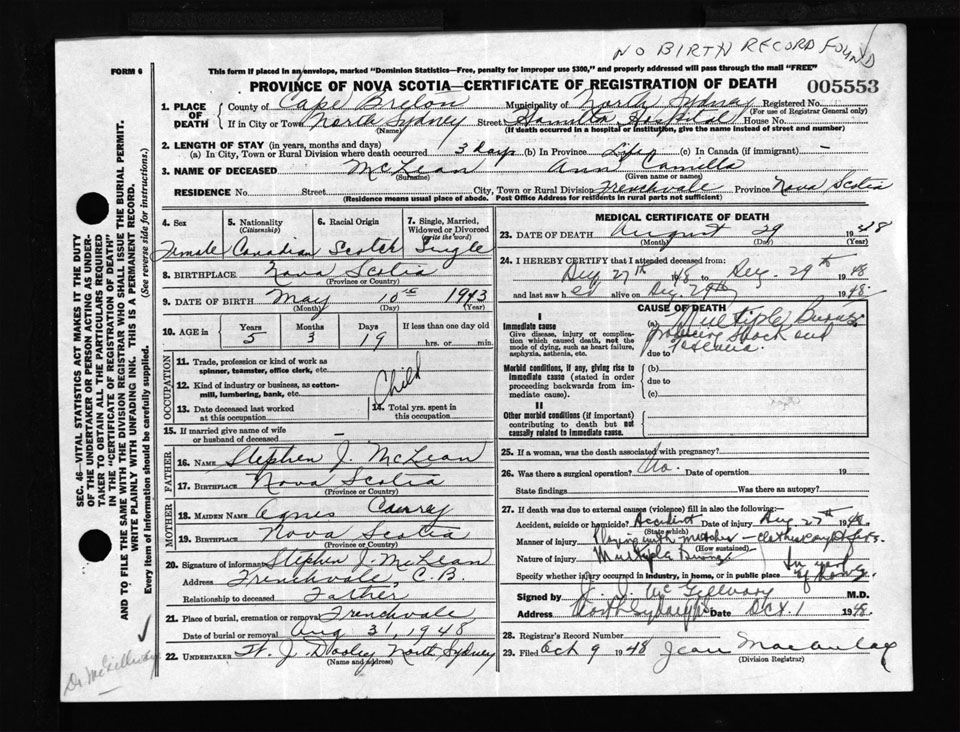 NO BIRTH RECORD FOUND
FORM 6
This form if placed in an envelope, marked "Dominion Statistics—Free, penalty for improper use $300," and properly addressed will pass through the mail "FREE"
PROVINCE OF NOVA SCOTIA—CERTIFICATE OF REGISTRATION OF DEATH
005553
1. PLACE OF DEATH
County of Cape Breton Municipality of North Sydney Registered No.
(For use of Registrar General only)
If in City or Town North Sydney Street Hamilton Hospital House No.
(Name) (If death occurred in a hospital or institution, give the name instead of street and number)
2. LENGTH OF STAY (in years, months and days)
(a) In City, Town or Rural Division where death occurred 3 days (b) In Province Life (c) In Canada (if immigrant) —
3. NAME OF DECEASED McLean Ann Camilla
(Surname) (Given name or names)
RESIDENCE No. Street City, Town or Rural Division Frenchvale Province Nova Scotia
(Residence means usual place of abode. Post Office Address for residents in rural parts not sufficient)
4. Sex
Female
5. Nationality
(Citizenship)
Canadian
6. Racial Origin
Scotch
7. Single, Married, Widowed or Divorced
(write the word)
Single
8. BIRTHPLACE Nova Scotia
(Province or Country)
9. DATE OF BIRTH May 10th 1943
(Month) (Day) (Year)
10. AGE in
Years Months Days If less than one day old
5 3 19 hrs. or min.
OCCUPATION
11. Trade, profession or kind of work as spinner, teamster, office clerk, etc.
12. Kind of industry or business, as cotton-mill, lumbering, bank, etc.
Child
13. Date deceased last worked at this occupation
14. Total yrs. spent in this occupation
15. If married give name of wife or husband of deceased —
FATHER
16. NAME Stephen J. McLean
17. BIRTHPLACE Nova Scotia
(Province or Country)
MOTHER
18. MAIDEN NAME Agnes
19. BIRTHPLACE Nova Scotia
(Province or Country)
20. Signature of informant Stephen J. McLean
Address Frenchvale, C.B.
Relationship to deceased Father
21. Place of burial, cremation or removal Frenchvale
Date of burial or removal Aug 31, 1948
22. UNDERTAKER J. Dooley North Sydney
(Name and address)
MEDICAL CERTIFICATE OF DEATH
23. DATE OF DEATH August 29 1948
(Month) (Day) (Year)
24. I HEREBY CERTIFY that I attended deceased from:
Aug 27th 1948 to Aug. 29th 1948
and last saw h er alive on Aug. 29th 1948
CAUSE OF DEATH
I
Immediate cause
Give disease, injury or complication which caused death, not the mode of dying, such as heart failure, asphyxia, asthenia, etc.
(a) Multiple Burns
shock and
due to
Morbid conditions, if any, giving rise to immediate cause (stated in order proceeding backwards from immediate cause).
(b)
due to
(c)
II
Other morbid conditions (if important) contributing to death but not causally related to immediate cause.
25. If a woman, was the death associated with pregnancy?
26. Was there a surgical operation? No. Date of operation 19
State findings Was there an autopsy?
27. If death was due to external causes (violence) fill in also the following:
Accident, suicide or homicide? Accident Date of injury Aug 27th 1948
(State which)
Manner of injury Playing with matches — clothes caught fire.
(How sustained)
Nature of injury Multiple burns
Specify whether injury occurred in industry, in home, or in public place In yard of home
Signed by J. J. McGillvary M.D.
Address North Sydney Date Oct 1 1948
28. Registrar's Record Number
29. Filed Oct 9 1948 Jean Macaulay
(Division Registrar)
SEC. 46—VITAL STATISTICS ACT MAKES IT THE DUTY
OF THE UNDERTAKER OR PERSON ACTING AS UNDER-
TAKER TO OBTAIN ALL THE PARTICULARS REQUIRED
IN THE "CERTIFICATE OF REGISTRATION OF DEATH"
AND TO FILE THE SAME WITH THE DIVISION REGISTRAR WHO SHALL ISSUE THE BURIAL PERMIT.
WRITE PLAINLY WITH UNFADING INK. THIS IS A PERMANENT RECORD.
Every item of information should be carefully supplied. (See reverse side for instructions.)
Dr McGillvary